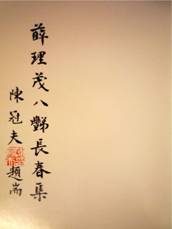 薛理茂八豑長春集
陳冠夫題耑